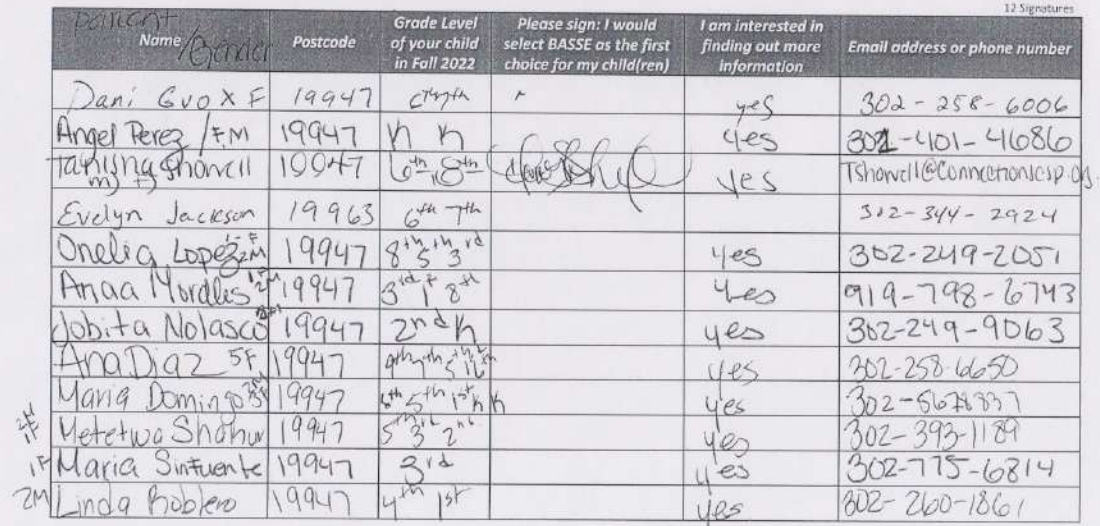 12 Signatures
parent
Name /Gender Postcode Grade Level of your child in Fall 2022 Please sign: I would select BASSE as the first choice for my child(ren) I am interested in finding out more information Email address or phone number
Dani X F 19947 yes 302-258-6006
Angel Perez / F M 19947 K K yes 302-401-4686
Showell 19947 6th, 8th yes Tshowell@Connectionscsp.org
Evelyn Jackson 19963 6th 7th 302-344-2924
Onelia Lopez 19947 8th 5th 3rd yes 302-249-2051
Anaa Morales 19947 3rd 1st 8th yes 919-798-6743
Jobita Nolasco 19947 2nd K yes 302-249-9063
Ana Diaz 5F 19947 yes 302-258-6650
Maria Domingo 19947 5th 1st K K yes
19947 5th 3rd 2nd yes 302-393-1189
1F Maria Sinfuente 19947 3rd yes 302-775-6814
2M Linda Roblero 19947 4th 1st yes 302-260-1861